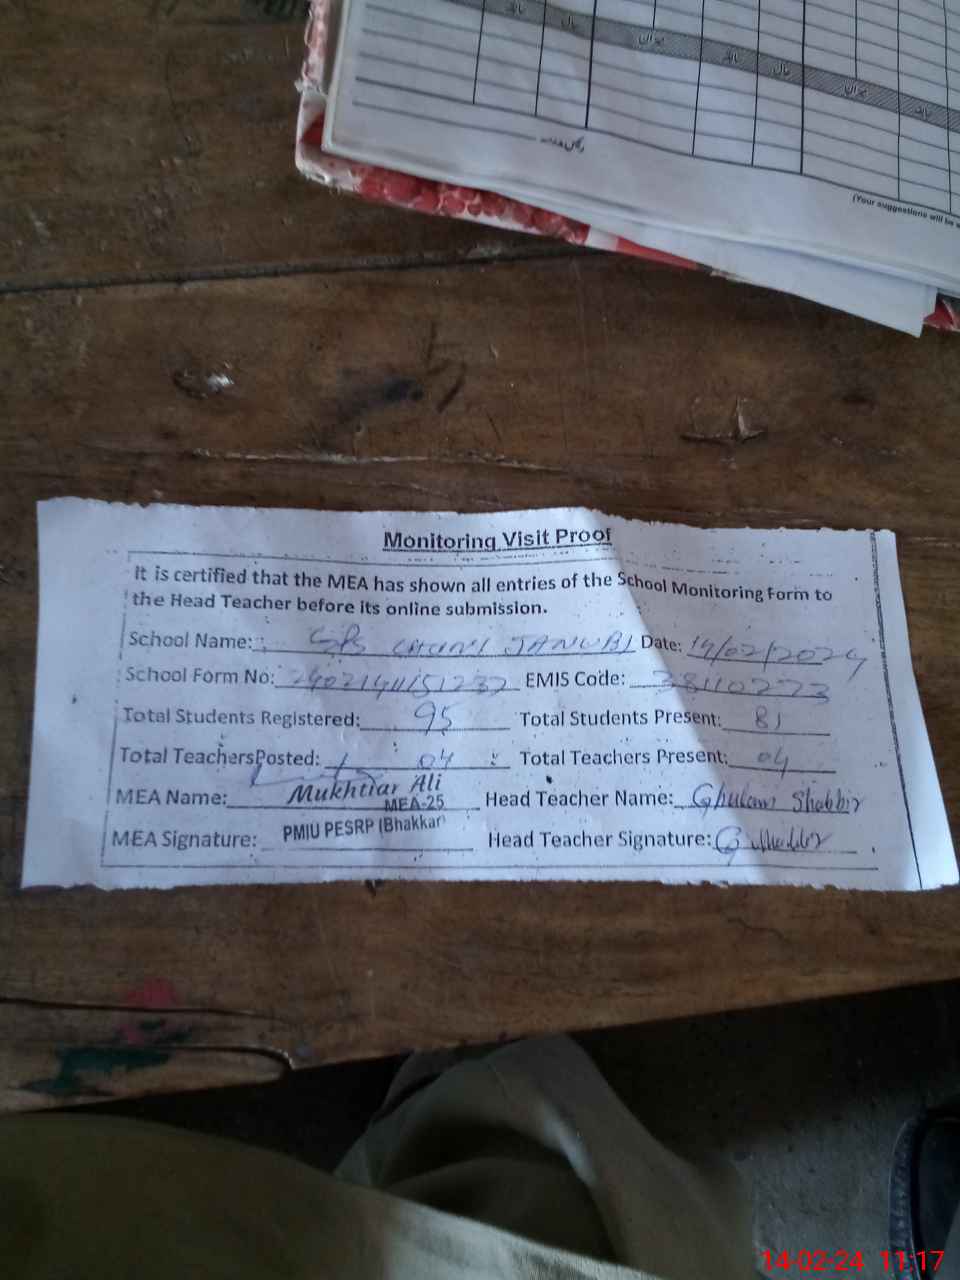 تاریخ سال میزان تاریخ سال میزان تاریخ
(Your suggestions will be
Monitoring Visit Proof
It is certified that the MEA has shown all entries of the School Monitoring Form to
the Head Teacher before its online submission.
School Name: GPS JANUBI Date: 14/02/2024
School Form No: EMIS Code: 38110273
Total Students Registered: 95 Total Students Present: 81
Total TeachersPosted: 04 Total Teachers Present: 04
MEA Name: Mukhtiar Ali Head Teacher Name: Ghulam Shabbir
MEA-25
MEA Signature: PMIU PESRP (Bhakkar) Head Teacher Signature: G Shabbir
14-02-24 11:17